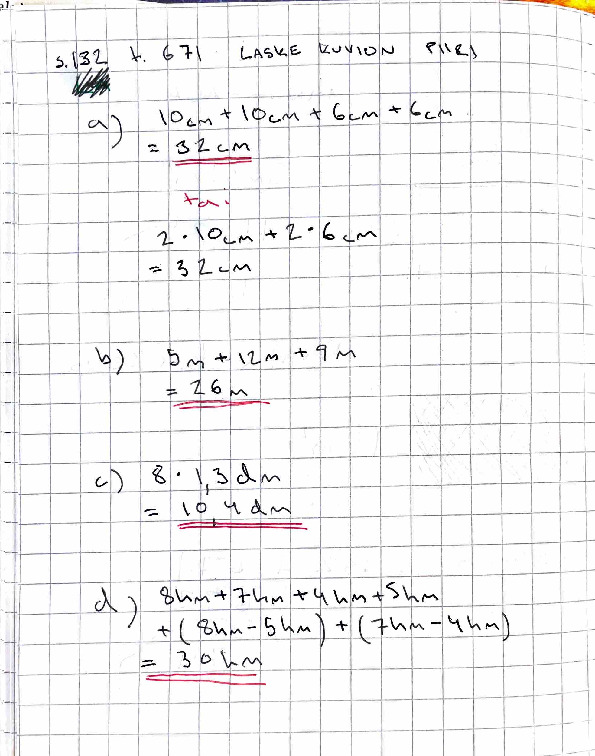 s.132 t. 671 LASKE KUVION PIIRI
a) 10cm + 10cm + 6cm + 6cm
= 32cm
tai
2 · 10cm + 2 · 6cm
= 32cm
b) 5m + 12m + 9m
= 26m
c) 8 · 1,3dm
= 10,4dm
d) 8hm + 7hm + 4hm + 5hm
+ (8hm - 5hm) + (7hm - 4hm)
= 30hm